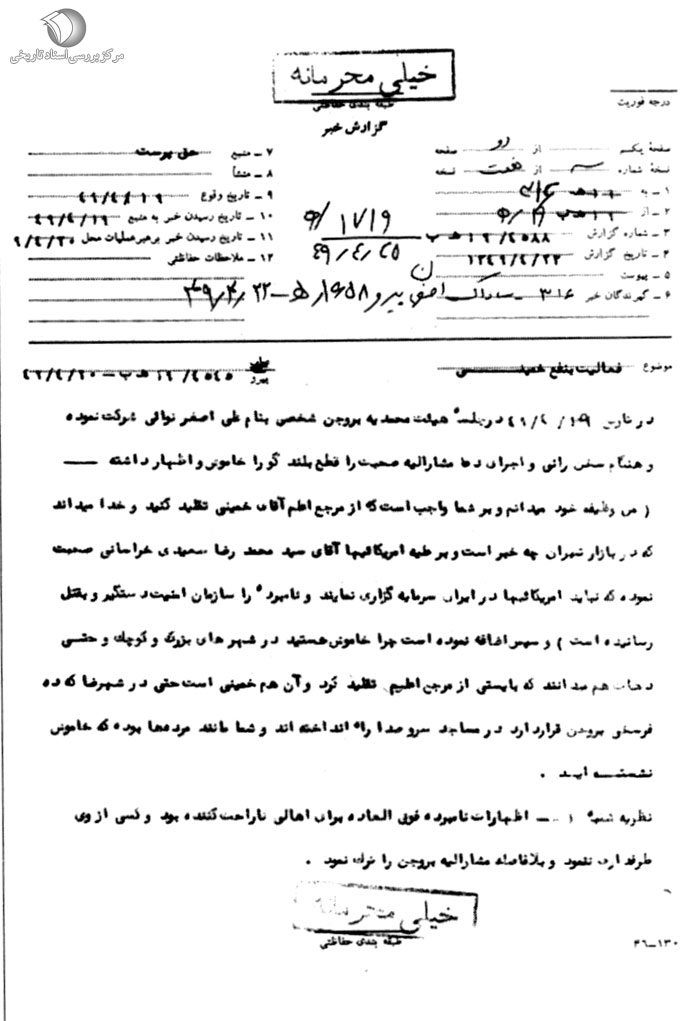 مرکز بررسی اسناد تاریخی
خیلی محرمانه
طبقه بندی حفاظتی
گزارش خبر
درجه فوریت
صفحه یکم از دو صفحه
نسخه شماره سه از هفت نسخه
۱ - به ۳۱۶
۲ - از
۳ - شماره گزارش
۴ - تاریخ گزارش ۱۳۴۹/۴/۲۲
۵ - پیوست
۶ - گیرندگان خبر ۳۱۶ - ساواک
۷ - منبع حق پرست
۸ - منشأ
۹ - تاریخ وقوع ۴۹/۴/۱۹
۱۰ - تاریخ رسیدن خبر به منبع ۴۹/۴/۱۹
۱۱ - تاریخ رسیدن خبر برهبر عملیات محل
۱۲ - ملاحظات حفاظتی
۴۹/۴/۲۵
موضوع فعالیت بنفع خمینی
پیرو
در تاریخ ۴۹/۴/۱۹ در جلسه هیئت محمدیه بروجن شخصی بنام علی اصغر نوائی شرکت نموده
و هنگام سخن رانی و اجرای دعا مشارالیه صحبت را قطع بلند گو را خاموش و اظهار داشته
( من وظیفه خود میدانم و بر شما واجب است که از مرجع اعلم آقای خمینی تقلید کنید و خدا میداند
که در بازار تهران چه خبر است و بر علیه امریکائیها آقای سید محمد رضا سعیدی خراسانی صحبت
نموده که نباید امریکائیها در ایران سرمایه گزاری نمایند و نامبرده را سازمان امنیت دستگیر و بقتل
رسانیده است ) و سپس اضافه نموده است چرا خاموش هستید در شهر های بزرگ و کوچک و حتی
دهات هم میدانند که بایستی از مرجع اعلم تقلید کرد و آن هم خمینی است حتی در شهرضا که ده
فرسخی بروجن قرار دارد در مساجد سر و صدا راه انداخته اند و شما مانند مرده‌ها بوده که خاموش
نشسته اید .
نظریه شنبه اظهارات نامبرده فوق العاده برای اهالی ناراحت کننده بود و کسی از وی
طرفداری ننمود و بلافاصله مشارالیه بروجن را ترک نمود .
خیلی محرمانه
طبقه بندی حفاظتی
۴۶-۱۳۰